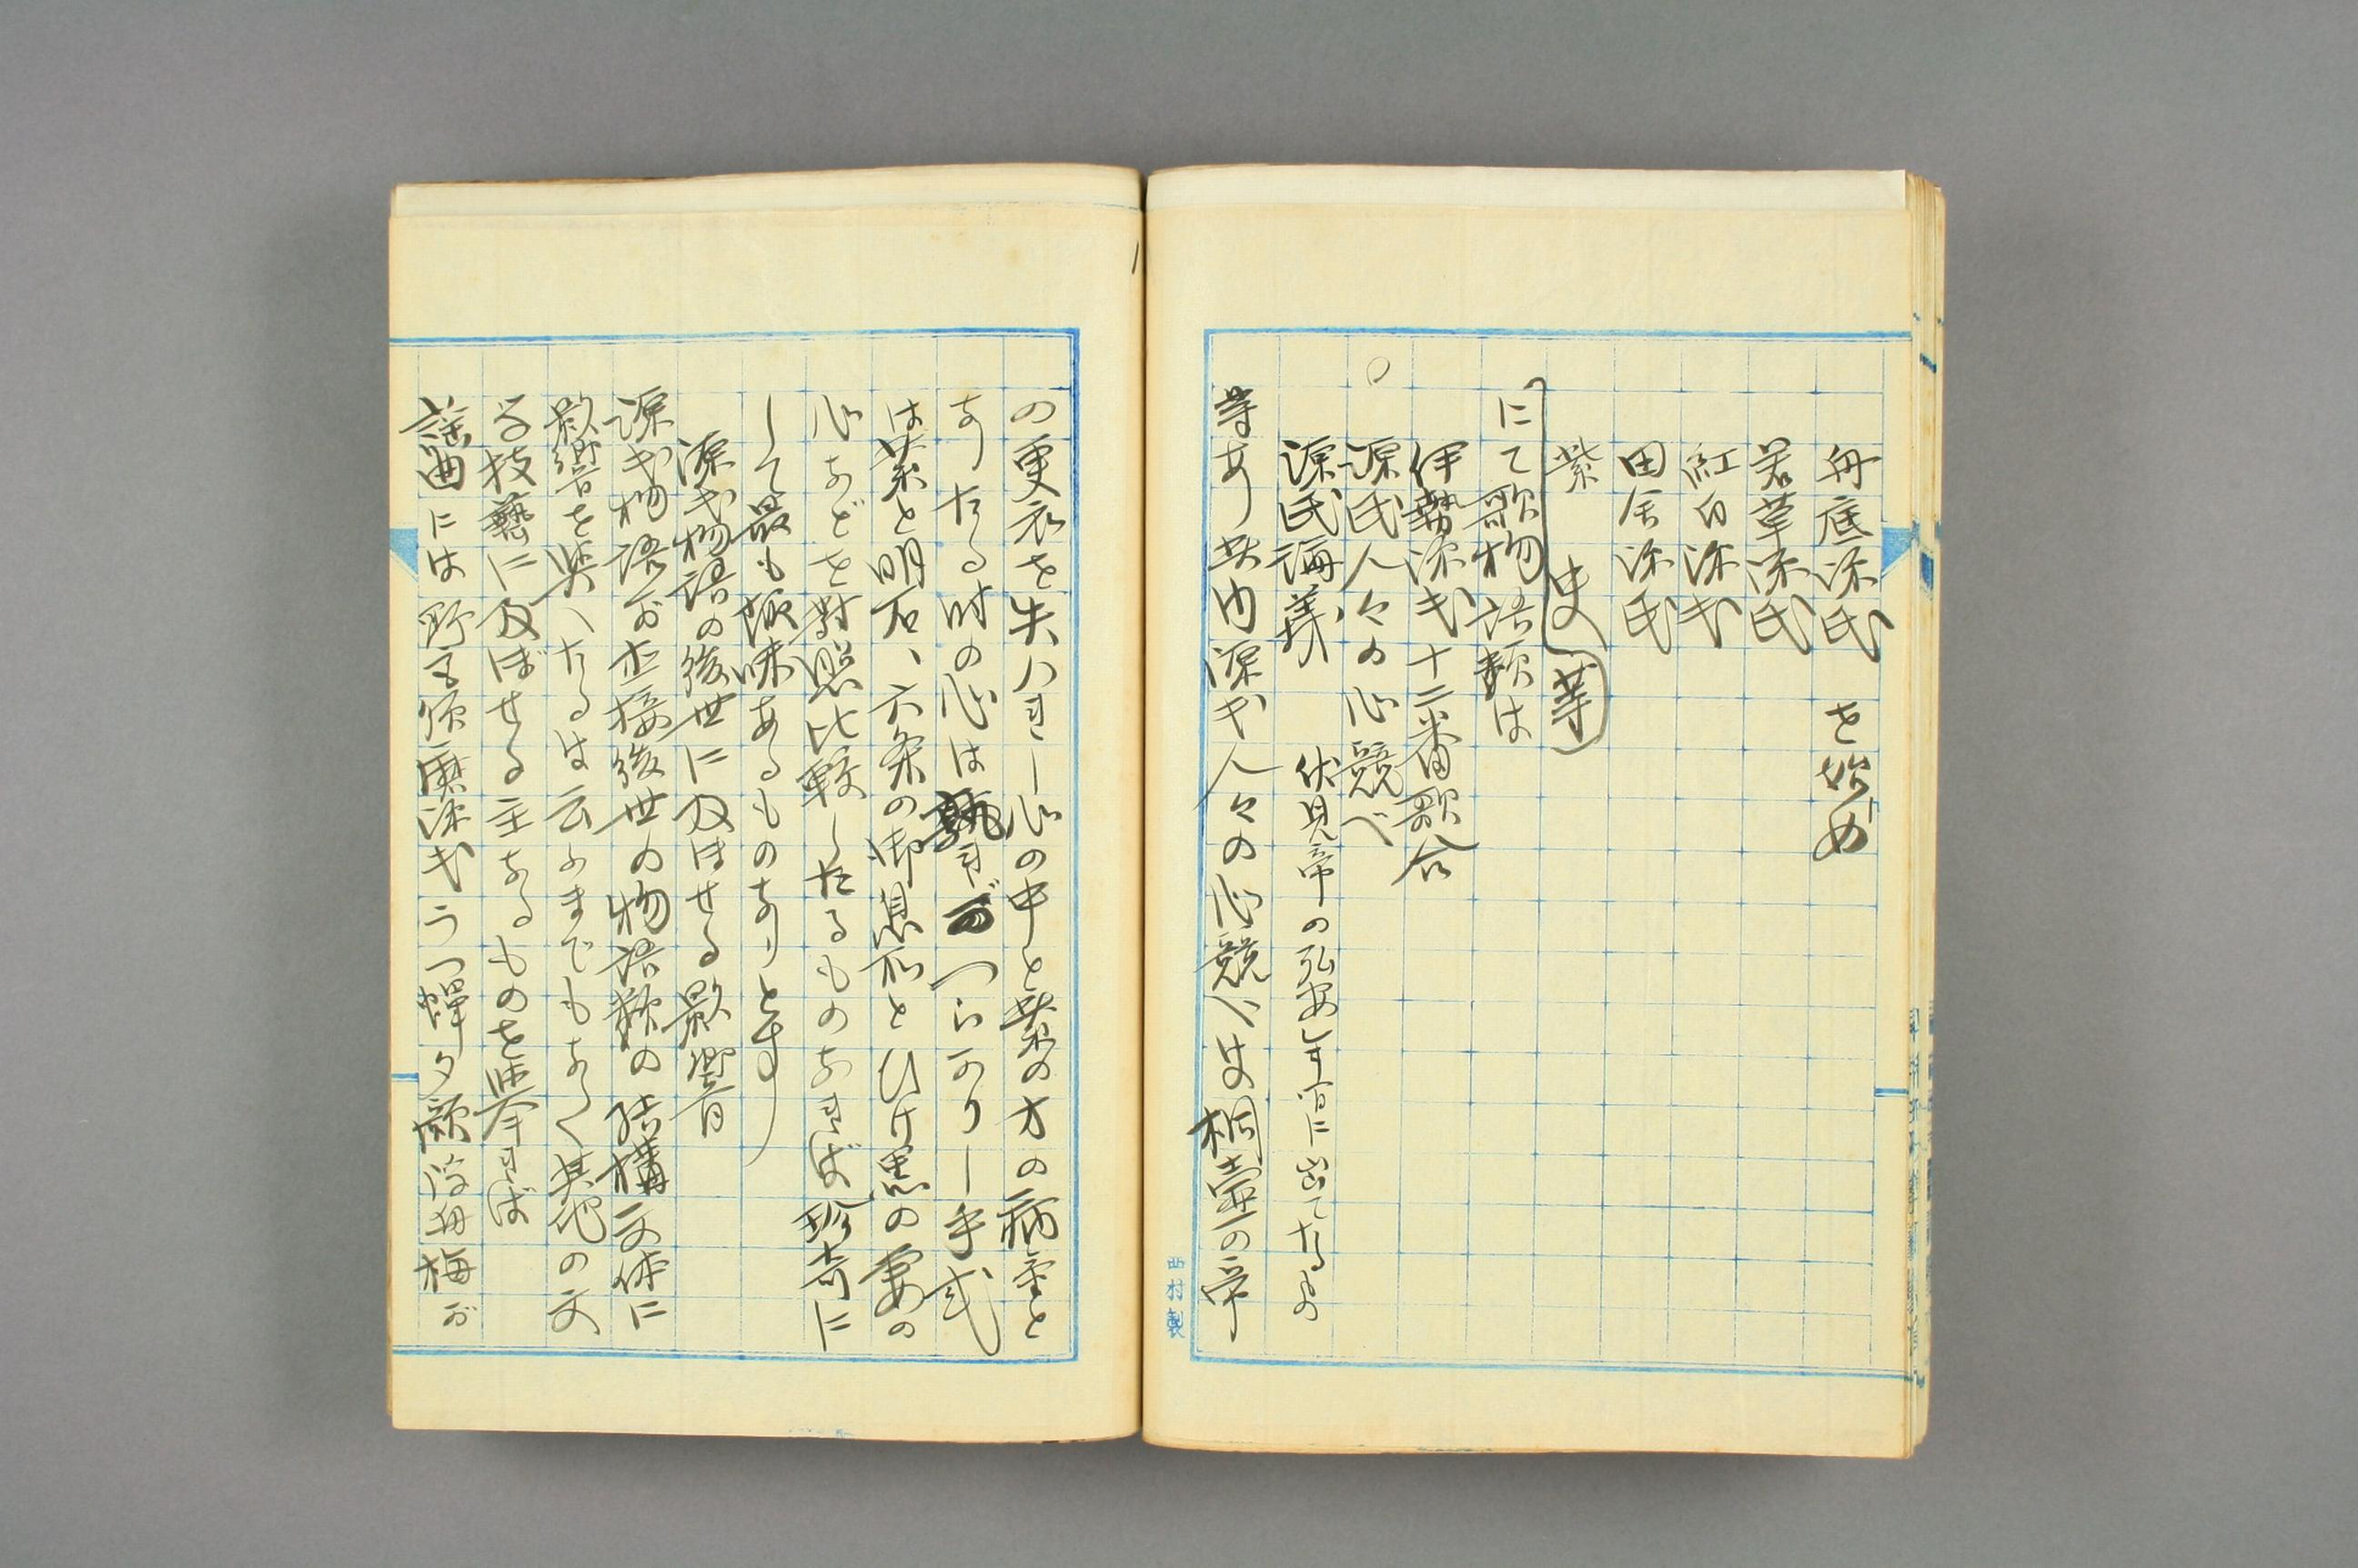 舟底源氏　を始め
若草源氏
紅白源氏
田舎源氏
紫　史（等）
にて歌物語類は
伊勢源氏十二番歌合
源氏人々の心競べ
源氏論義　伏見帝の弘安年間に出てたるもの
等あり其内源氏人々の心競べは桐壷の帝
の更衣を失ハれし心の中と葵の方の病重と
なりたる時の心は孰れがつらかりし手式
は葵と明石、六条の御息所とひげ黒の妻の
心などを対照比較したるものなれば珍奇に
して最も趣味あるものなりとす
源氏物語の後世に及ぼせる影響
源氏物語が直接後世の物語類の結構文体に
影響を與へたるは云ふまでもなく其他の文
学技藝に及ぼせる主なるものを挙れば
謡曲には野宮須磨源氏うつ蝉夕顔浮舟梅が
西村製